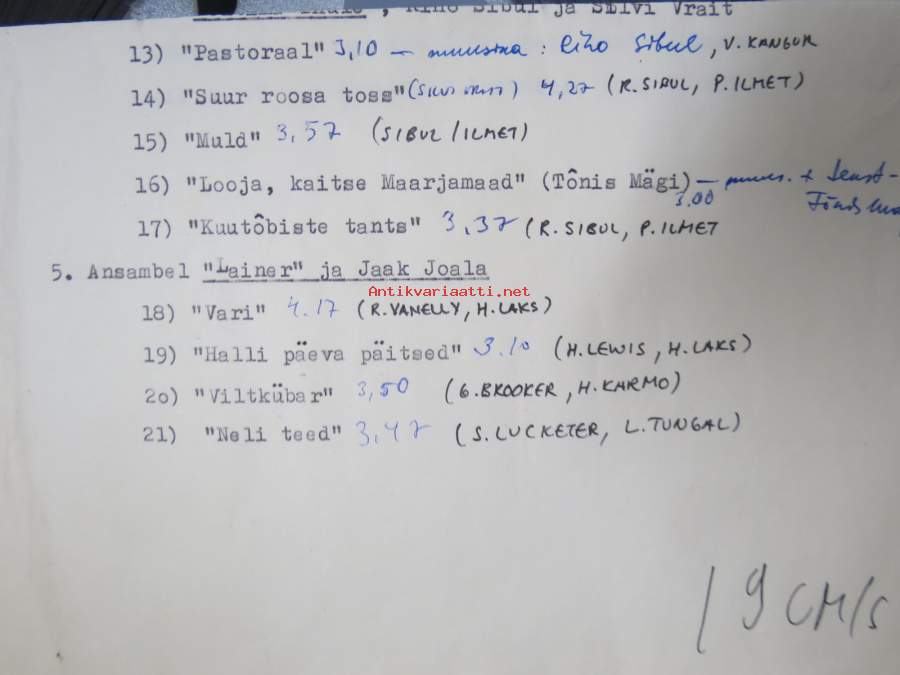 , Riho Sibul ja Silvi Vrait
13) "Pastoraal" 3,10 — muusika: Riho Sibul, V. KANGUR
14) "Suur roosa toss" (SILVI VRAIT) 4,27 (R. SIBUL, P. ILMET)
15) "Muld" 3,57 (SIBUL / ILMET)
16) "Looja, kaitse Maarjamaad" (Tônis Mägi) — muus. +
3.00
17) "Kuutôbiste tants" 3,37 (R. SIBUL, P. ILMET
5. Ansambel "Lainer" ja Jaak Joala
Antikvariaatti.net
18) "Vari" 4.17 (R. VANELLY, H. LAKS)
19) "Halli päeva päitsed" 3.10 (H. LEWIS, H. LAKS)
2o) "Viltkübar" 3,50 (G. BROOKER, H. KARMO)
21) "Neli teed" 3,47 (S. LUCKETER, L. TUNGAL)
19 CM/S